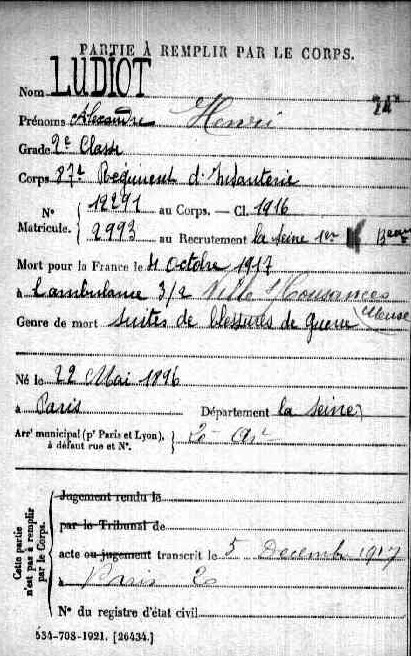 PARTIE À REMPLIR PAR LE CORPS.
Nom LUDIOT
Prénoms Alexandre Henri
Grade 2e Classe
Corps 87e Régiment d'Infanterie
N° Matricule. { 12291 au Corps. — Cl. 1916
2993 au Recrutement la Seine 1er
Mort pour la France le 4 octobre 1917
à L'ambulance 3/2 Ville s/ Cousances
Genre de mort suites de blessures de guerre (Meuse
Né le 22 Mai 1896
à Paris Département la Seine
Arrt municipal (pr Paris et Lyon), à défaut rue et N°. { 2e Art
Cette partie n'est pas à remplir par le Corps.
Jugement rendu le
par le Tribunal de
acte ou jugement transcrit le 5 Decembre 1917
à Paris 2e
N° du registre d'état civil
534-708-1921. [26434.]